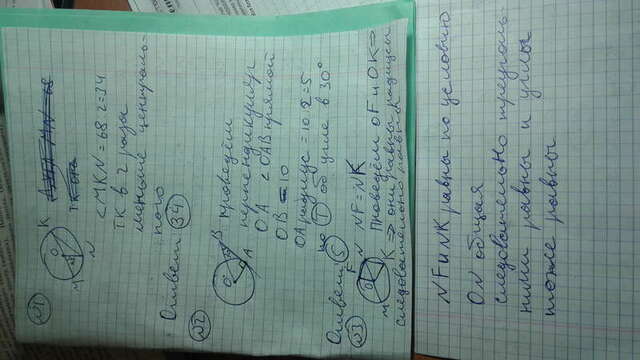 №1
K
M
N
O
<MKN=68:2=34
тк в 2 раза
меньше централь-
ного
Ответ 34
№2
B
O
A
Проведём
перпендикуляр
OA <OAB прямой
OB = 10
OA радиус = 10:2=5
по об угле в 30°
Ответ 5
№3
F
N
M
K
O
NF=NK
Проведём OF и OK =>
=> они равны радиусы
следовательно равны
NF и NK равны по условию
ON общая
следовательно треуголь-
ники равны и углы
тоже равны